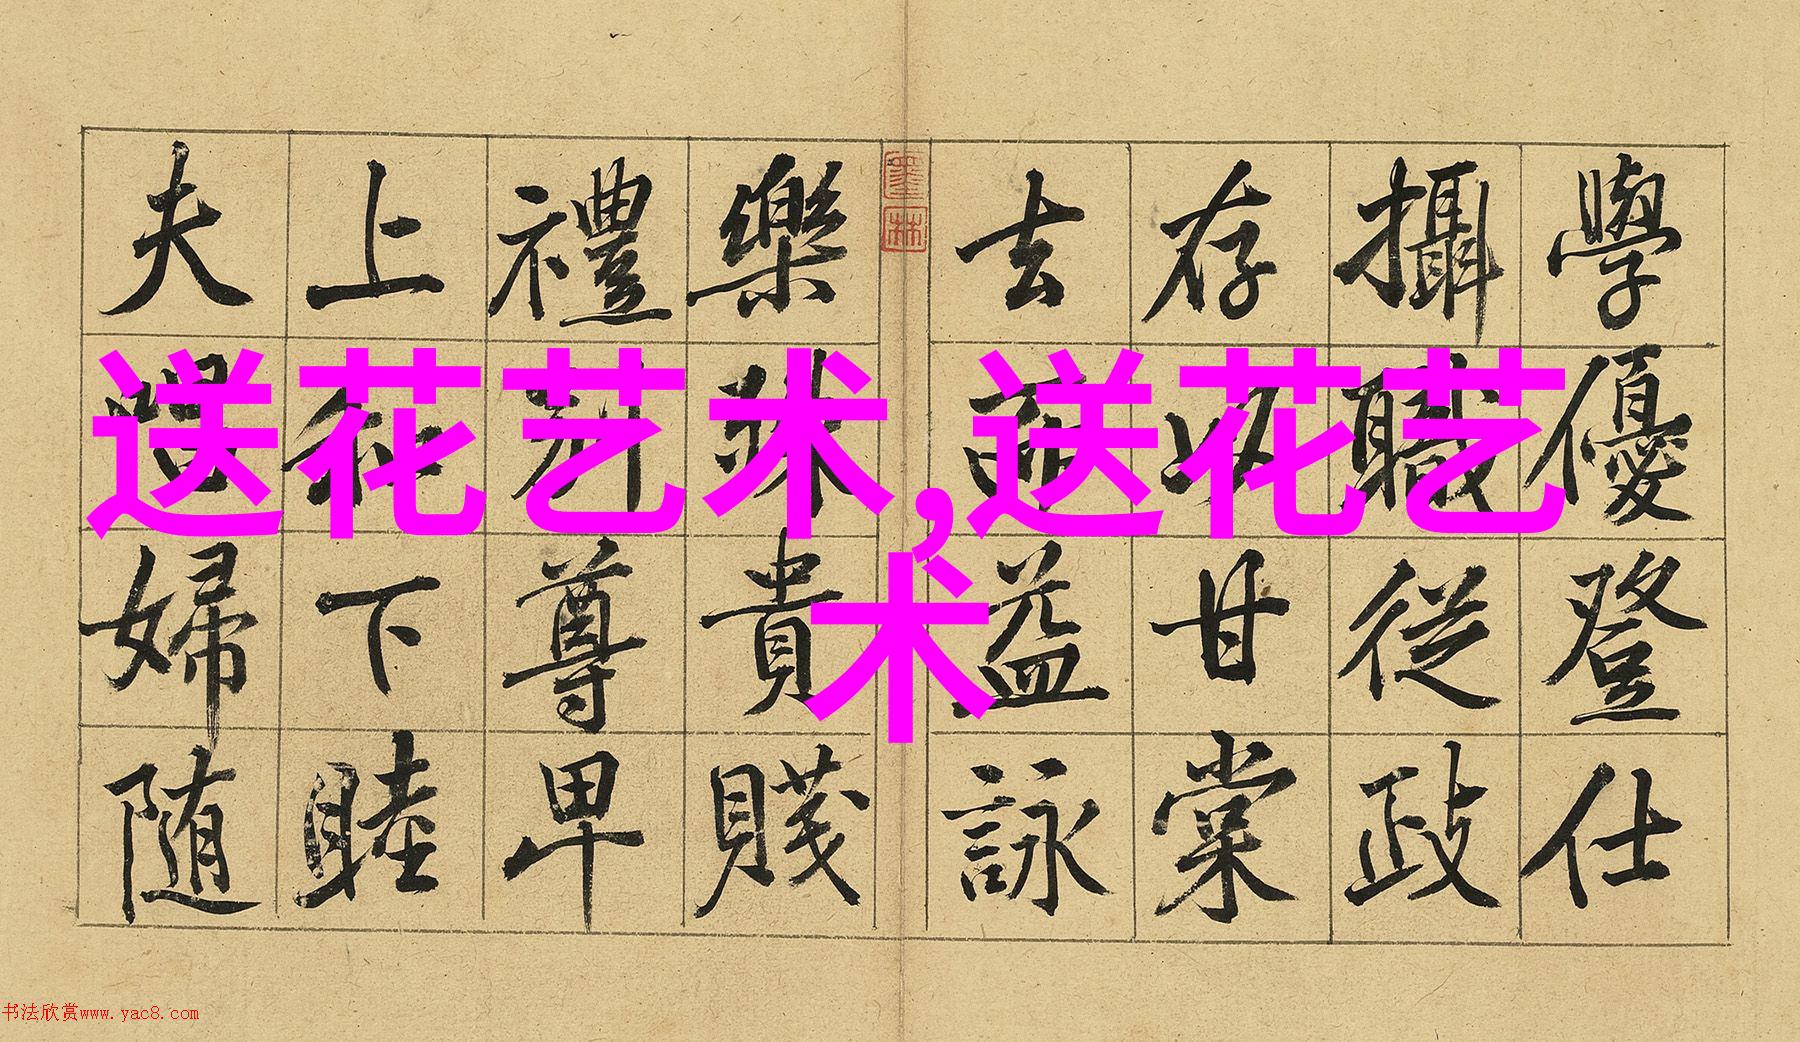 送花艺术,送花艺
术
學優登仕
攝職從政
存以甘棠
去而益詠
墨林
樂殊貴賤
禮別尊卑
上和下睦
夫唱婦随
书法欣赏www.yac8.com